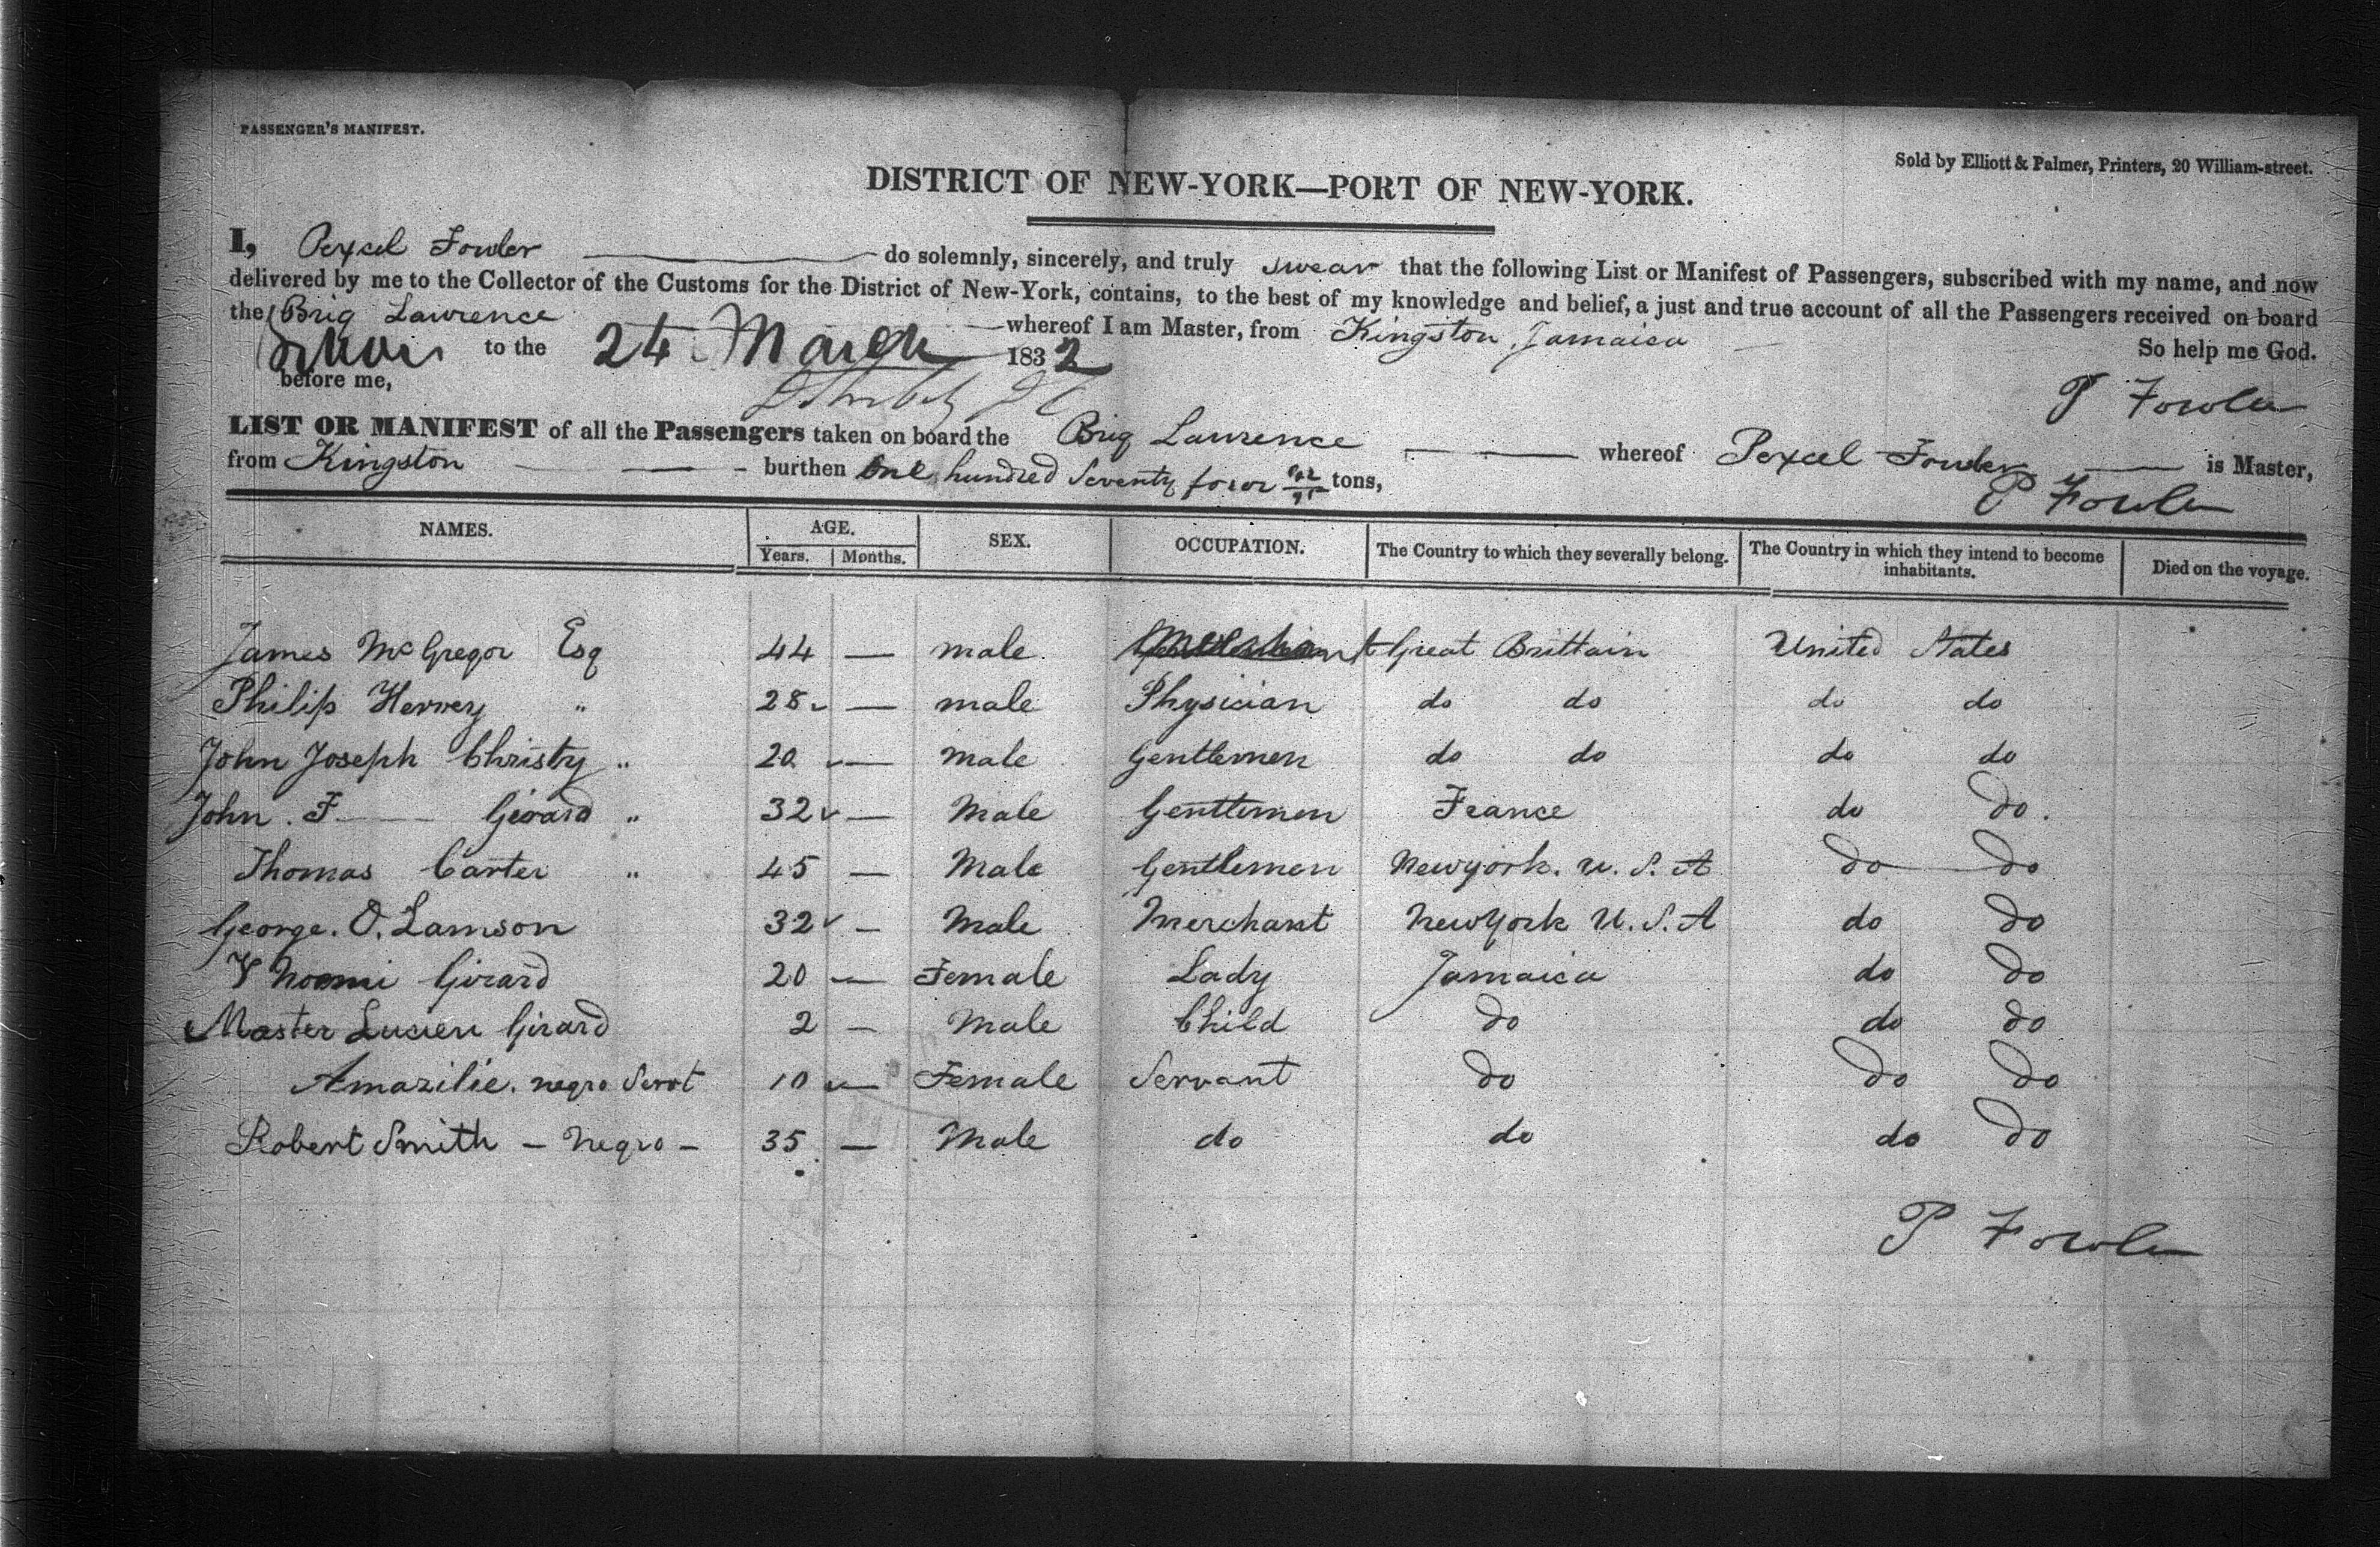 PASSENGER'S MANIFEST.
Sold by Elliott & Palmer, Printers, 20 William-street.
DISTRICT OF NEW-YORK—PORT OF NEW-YORK.
I, Pexcel Fowler do solemnly, sincerely, and truly swear that the following List or Manifest of Passengers, subscribed with my name, and now
delivered by me to the Collector of the Customs for the District of New-York, contains, to the best of my knowledge and belief, a just and true account of all the Passengers received on board
the Brig Lawrence whereof I am Master, from Kingston, Jamaica
Sworn to the 24 March 1832 So help me God.
before me,
P Fowler
LIST OR MANIFEST of all the Passengers taken on board the Brig Lawrence whereof Pexcel Fowler is Master,
from Kingston burthen One hundred Seventy four tons,
P Fowler
NAMES. AGE. SEX. OCCUPATION. The Country to which they severally belong. The Country in which they intend to become inhabitants. Died on the voyage.
Years. Months.
James McGregor Esq 44 — male Merchant Great Brittain United States
Philip Hervey " 28 — male Physician do do do do
John Joseph Christy " 20 — male Gentlemen do do do do
John. F Girard " 32 — Male Gentlemen France do do.
Thomas Carter " 45 — Male Gentlemen Newyork. U. S. A do do
George. O. Lamson 32 — Male Merchant New york U. S. A do do
Noemi Girard 20 — Female Lady Jamaica do do
Master Lucien Girard 2 — Male Child do do do
Amazilie. negro Servt 10 — Female Servant do do do
Robert Smith — Negro — 35 — Male do do do do
P Fowler